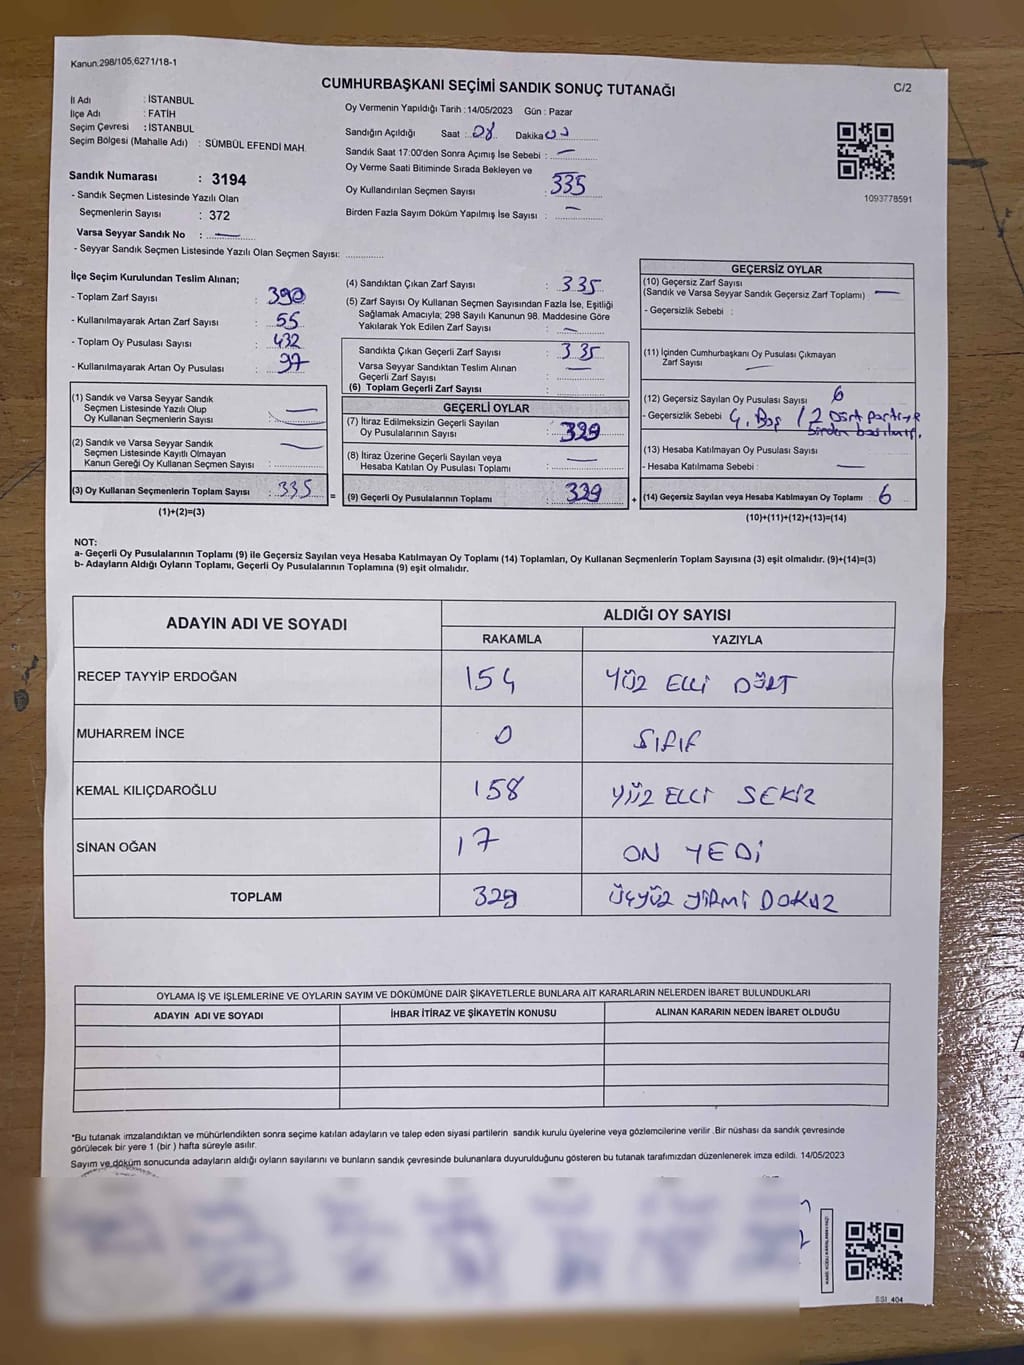 Kanun.298/105,6271/18-1
CUMHURBAŞKANI SEÇİMİ SANDIK SONUÇ TUTANAĞI
C/2
İl Adı : İSTANBUL
İlçe Adı : FATİH
Seçim Çevresi : İSTANBUL
Seçim Bölgesi (Mahalle Adı) : SÜMBÜL EFENDİ MAH.
Sandık Numarası : 3194
- Sandık Seçmen Listesinde Yazılı Olan
Seçmenlerin Sayısı : 372
Varsa Seyyar Sandık No : —
- Seyyar Sandık Seçmen Listesinde Yazılı Olan Seçmen Sayısı:
Oy Vermenin Yapıldığı Tarih :14/05/2023 Gün : Pazar
Sandığın Açıldığı Saat : 08 Dakika
Sandık Saat 17:00'den Sonra Açımış İse Sebebi : —
Oy Verme Saati Bitiminde Sırada Bekleyen ve
Oy Kullandırılan Seçmen Sayısı : 335
Birden Fazla Sayım Döküm Yapılmış İse Sayısı : —
1093778591
İlçe Seçim Kurulundan Teslim Alınan;
- Toplam Zarf Sayısı : 390
- Kullanılmayarak Artan Zarf Sayısı : 55
- Toplam Oy Pusulası Sayısı : 432
- Kullanılmayarak Artan Oy Pusulası : 97
(1) Sandık ve Varsa Seyyar Sandık
Seçmen Listesinde Yazılı Olup
Oy Kullanan Seçmenlerin Sayısı : —
(2) Sandık ve Varsa Seyyar Sandık
Seçmen Listesinde Kayıtlı Olmayan
Kanun Gereği Oy Kullanan Seçmen Sayısı : —
(3) Oy Kullanan Seçmenlerin Toplam Sayısı : 335
(1)+(2)=(3)
=
(4) Sandıktan Çıkan Zarf Sayısı : 335
(5) Zarf Sayısı Oy Kullanan Seçmen Sayısından Fazla İse, Eşitliği
Sağlamak Amacıyla; 298 Sayılı Kanunun 98. Maddesine Göre
Yakılarak Yok Edilen Zarf Sayısı : —
Sandıkta Çıkan Geçerli Zarf Sayısı : 335
Varsa Seyyar Sandıktan Teslim Alınan : —
Geçerli Zarf Sayısı
(6) Toplam Geçerli Zarf Sayısı :
GEÇERLİ OYLAR
(7) İtiraz Edilmeksizin Geçerli Sayılan
Oy Pusulalarının Sayısı : 329
(8) İtiraz Üzerine Geçerli Sayılan veya
Hesaba Katılan Oy Pusulası Toplamı : —
(9) Geçerli Oy Pusulalarının Toplamı : 329
+
GEÇERSİZ OYLAR
(10) Geçersiz Zarf Sayısı
(Sandık ve Varsa Seyyar Sandık Geçersiz Zarf Toplamı) —
- Geçersizlik Sebebi :
(11) İçinden Cumhurbaşkanı Oy Pusulası Çıkmayan
Zarf Sayısı —
(12) Geçersiz Sayılan Oy Pusulası Sayısı : 6
- Geçersizlik Sebebi : 4. Boş / 2 Dört partiye
birden
(13) Hesaba Katılmayan Oy Pusulası Sayısı
- Hesaba Katılmama Sebebi : —
(14) Geçersiz Sayılan veya Hesaba Katılmayan Oy Toplamı : 6
(10)+(11)+(12)+(13)=(14)
NOT:
a- Geçerli Oy Pusulalarının Toplamı (9) ile Geçersiz Sayılan veya Hesaba Katılmayan Oy Toplamı (14) Toplamları, Oy Kullanan Seçmenlerin Toplam Sayısına (3) eşit olmalıdır. (9)+(14)=(3)
b- Adayların Aldığı Oyların Toplamı, Geçerli Oy Pusulalarının Toplamına (9) eşit olmalıdır.
ADAYIN ADI VE SOYADI
ALDIĞI OY SAYISI
RAKAMLA YAZIYLA
RECEP TAYYİP ERDOĞAN 154 YÜZ ELLİ DÖRT
MUHARREM İNCE 0 SIFIR
KEMAL KILIÇDAROĞLU 158 YÜZ ELLİ SEKİZ
SİNAN OĞAN 17 ON YEDİ
TOPLAM 329 ÜÇYÜZ YİRMİ DOKUZ
OYLAMA İŞ VE İŞLEMLERİNE VE OYLARIN SAYIM VE DÖKÜMÜNE DAİR ŞİKAYETLERLE BUNLARA AİT KARARLARIN NELERDEN İBARET BULUNDUKLARI
ADAYIN ADI VE SOYADI İHBAR İTİRAZ VE ŞİKAYETİN KONUSU ALINAN KARARIN NEDEN İBARET OLDUĞU
*Bu tutanak imzalandıktan ve mühürlendikten sonra seçime katılan adayların ve talep eden siyasi partilerin sandık kurulu üyelerine veya gözlemcilerine verilir .Bir nüshası da sandık çevresinde
görülecek bir yere 1 (bir ) hafta süreyle asılır.
Sayım ve döküm sonucunda adayların aldığı oyların sayılarını ve bunların sandık çevresinde bulunanlara duyurulduğunu gösteren bu tutanak tarafımızdan düzenlenerek imza edildi. 14/05/2023
SSI_404